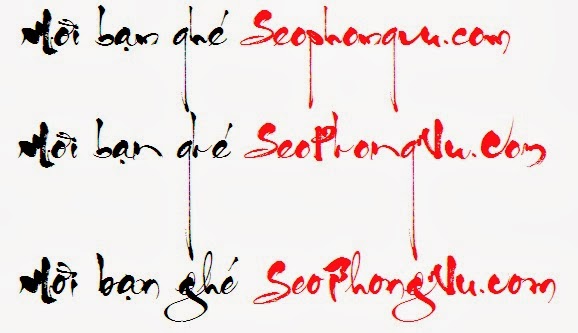 Mời bạn ghé Seophongvu.com
Mời bạn ghé SeoPhongVu.Com
Mời bạn ghé SeoPhongVu.com